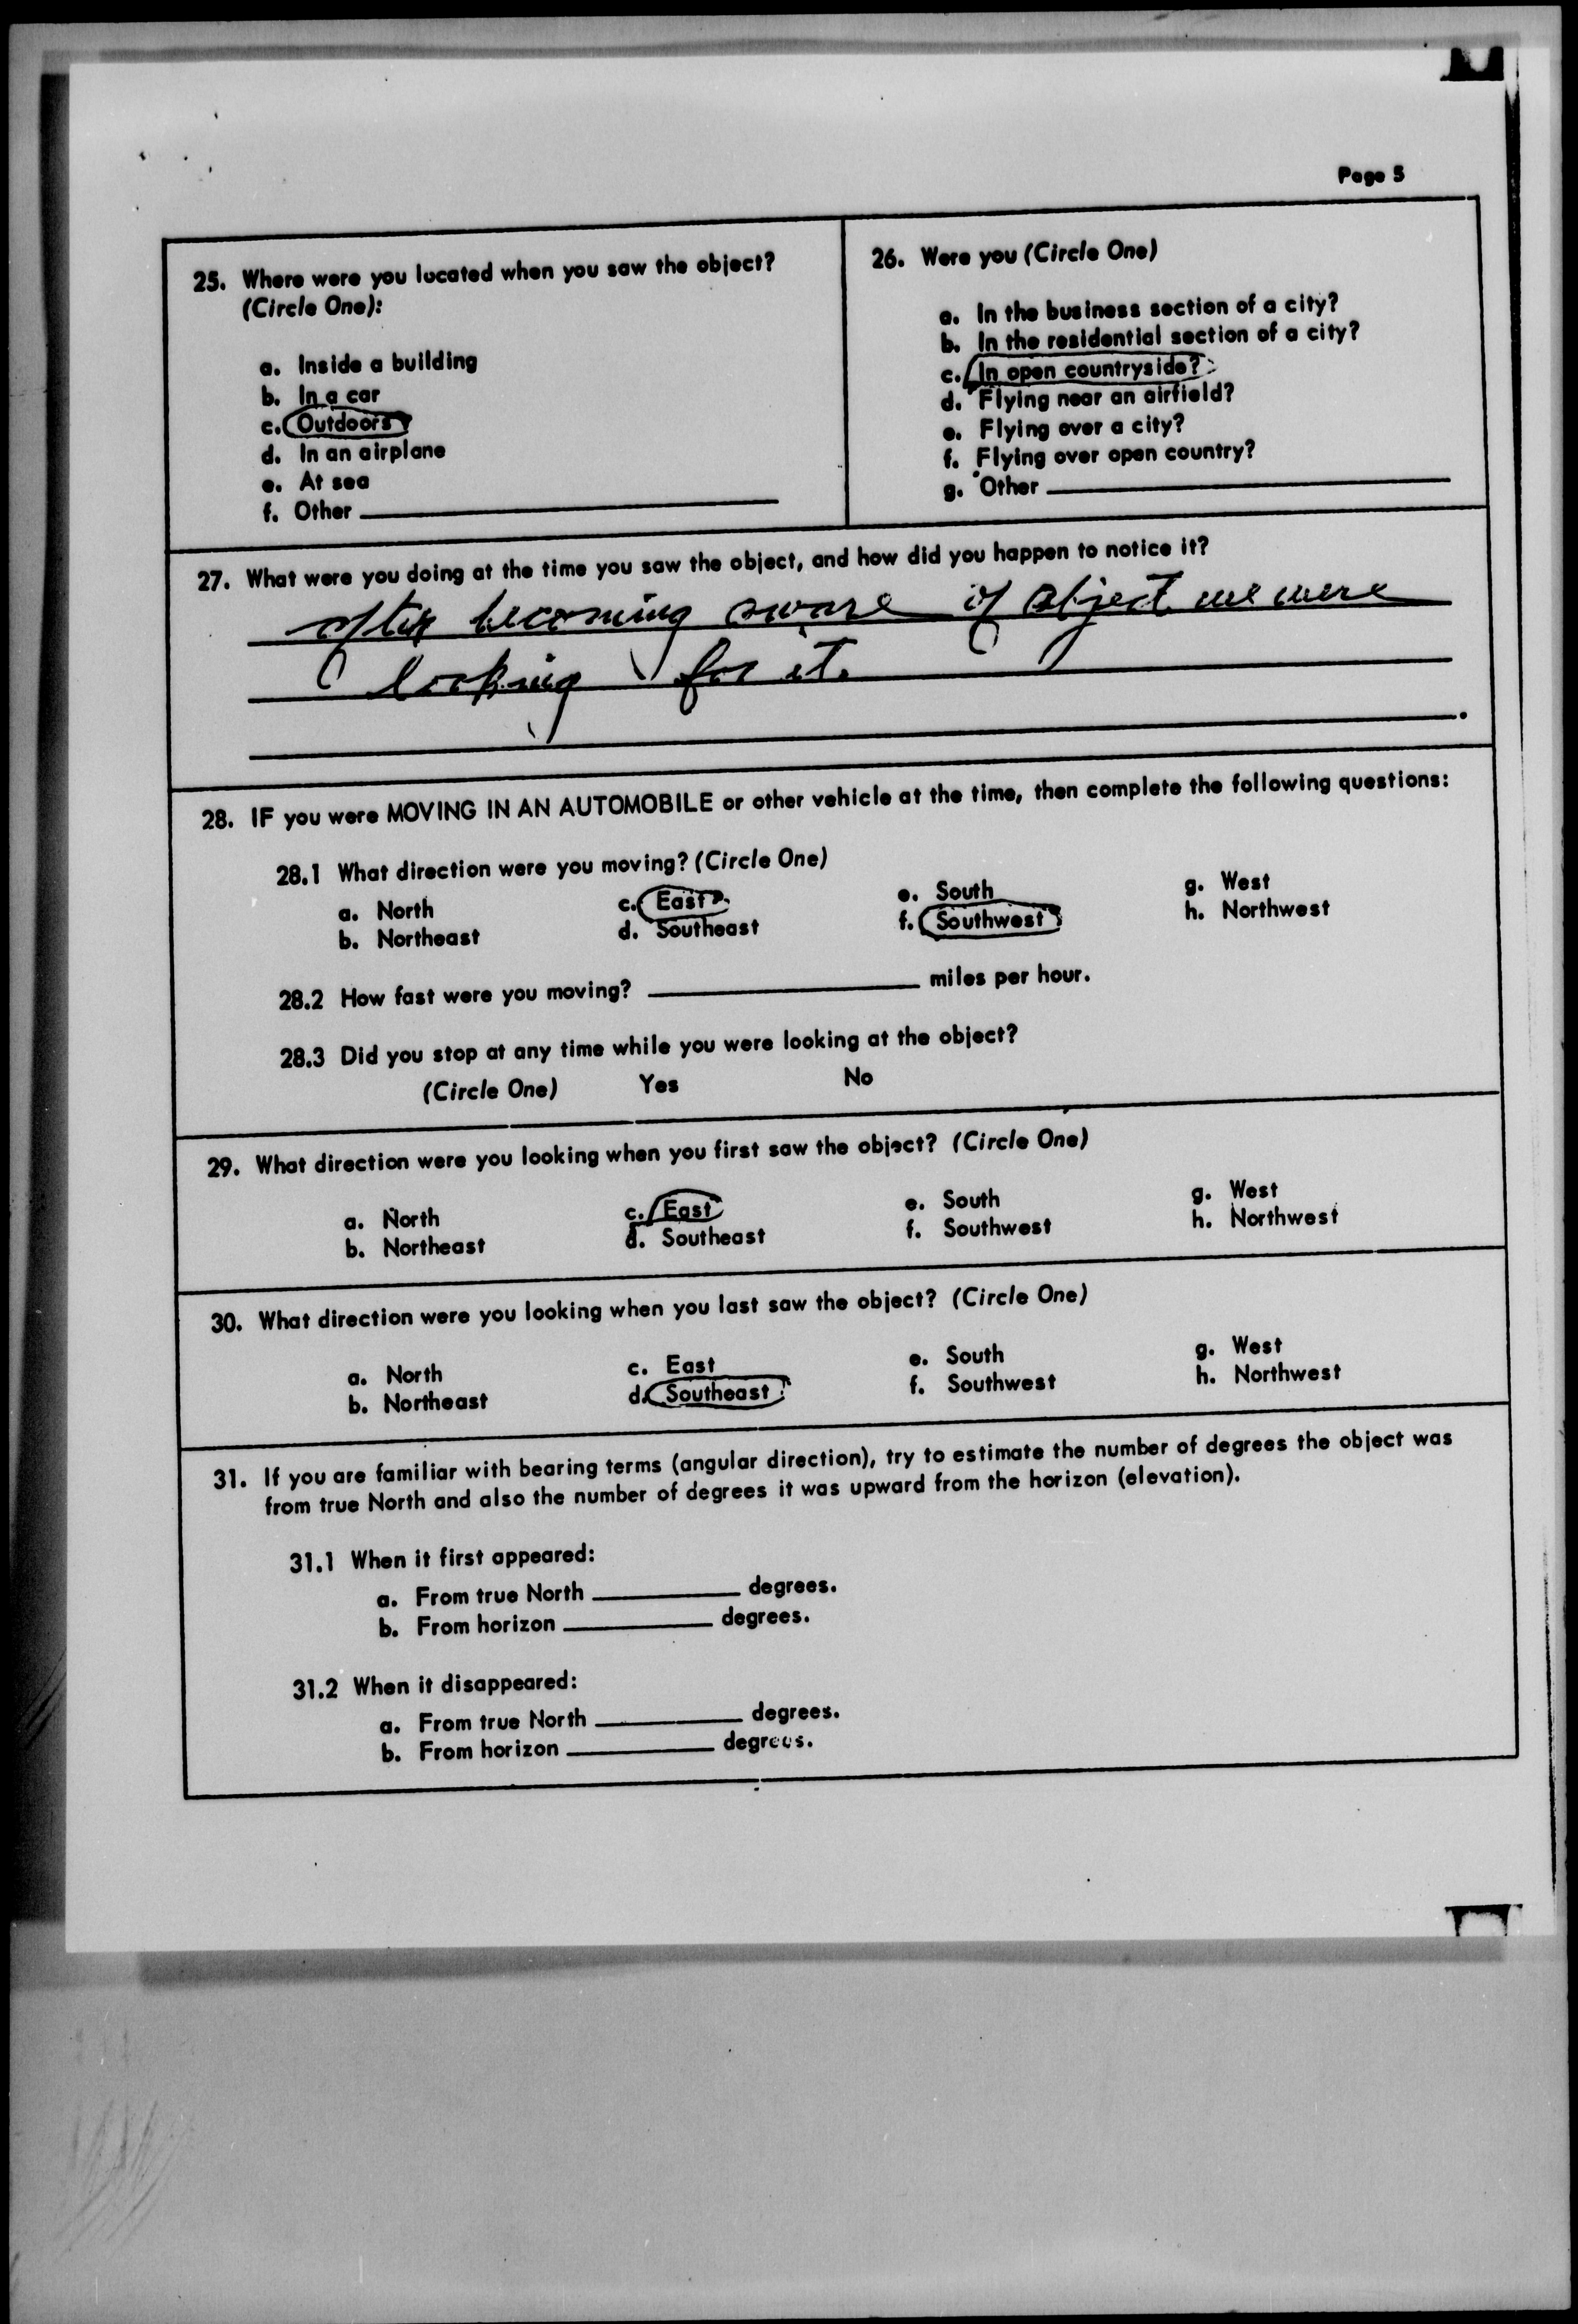 Page 5
25. Where were you located when you saw the object?
(Circle One):
a. Inside a building
b. In a car
c. Outdoors
d. In an airplane
e. At sea
f. Other
26. Were you (Circle One)
a. In the business section of a city?
b. In the residential section of a city?
c. In open countryside?
d. Flying near an airfield?
e. Flying over a city?
f. Flying over open country?
g. Other
27. What were you doing at the time you saw the object, and how did you happen to notice it?
after becoming aware of object we were
looking for it.
28. IF you were MOVING IN AN AUTOMOBILE or other vehicle at the time, then complete the following questions:
28.1 What direction were you moving? (Circle One)
a. North c. East e. South g. West
b. Northeast d. Southeast f. Southwest h. Northwest
28.2 How fast were you moving? miles per hour.
28.3 Did you stop at any time while you were looking at the object?
(Circle One) Yes No
29. What direction were you looking when you first saw the object? (Circle One)
a. North c. East e. South g. West
b. Northeast d. Southeast f. Southwest h. Northwest
30. What direction were you looking when you last saw the object? (Circle One)
a. North c. East e. South g. West
b. Northeast d. Southeast f. Southwest h. Northwest
31. If you are familiar with bearing terms (angular direction), try to estimate the number of degrees the object was
from true North and also the number of degrees it was upward from the horizon (elevation).
31.1 When it first appeared:
a. From true North degrees.
b. From horizon degrees.
31.2 When it disappeared:
a. From true North degrees.
b. From horizon degrees.